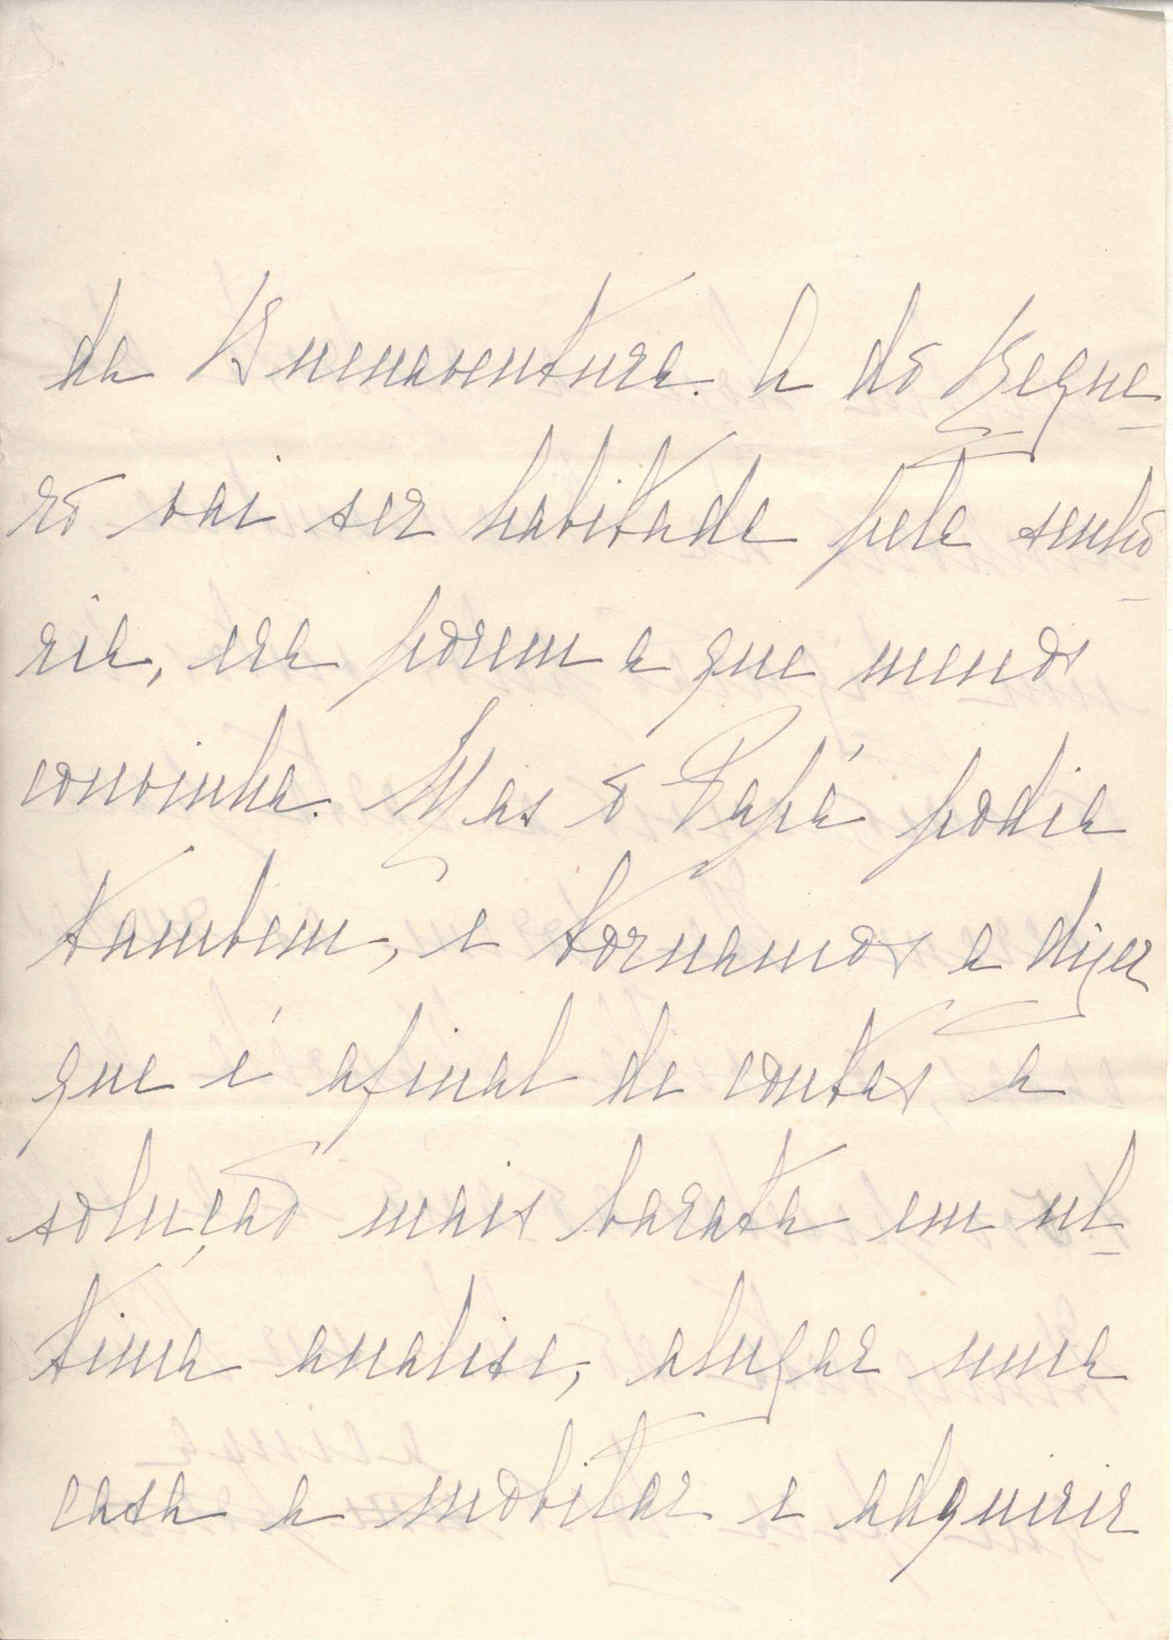 da Buenaventura. A do Regue-
ro vai ser habitada pela senho-
ria, era porem a que menos
convinha. Mas o Papá podia
tambem, e tornamos a dizer
que é afinal de contas a
solução mais barata em ul-
tima analise, alugar uma
casa a mobilar e adquirir